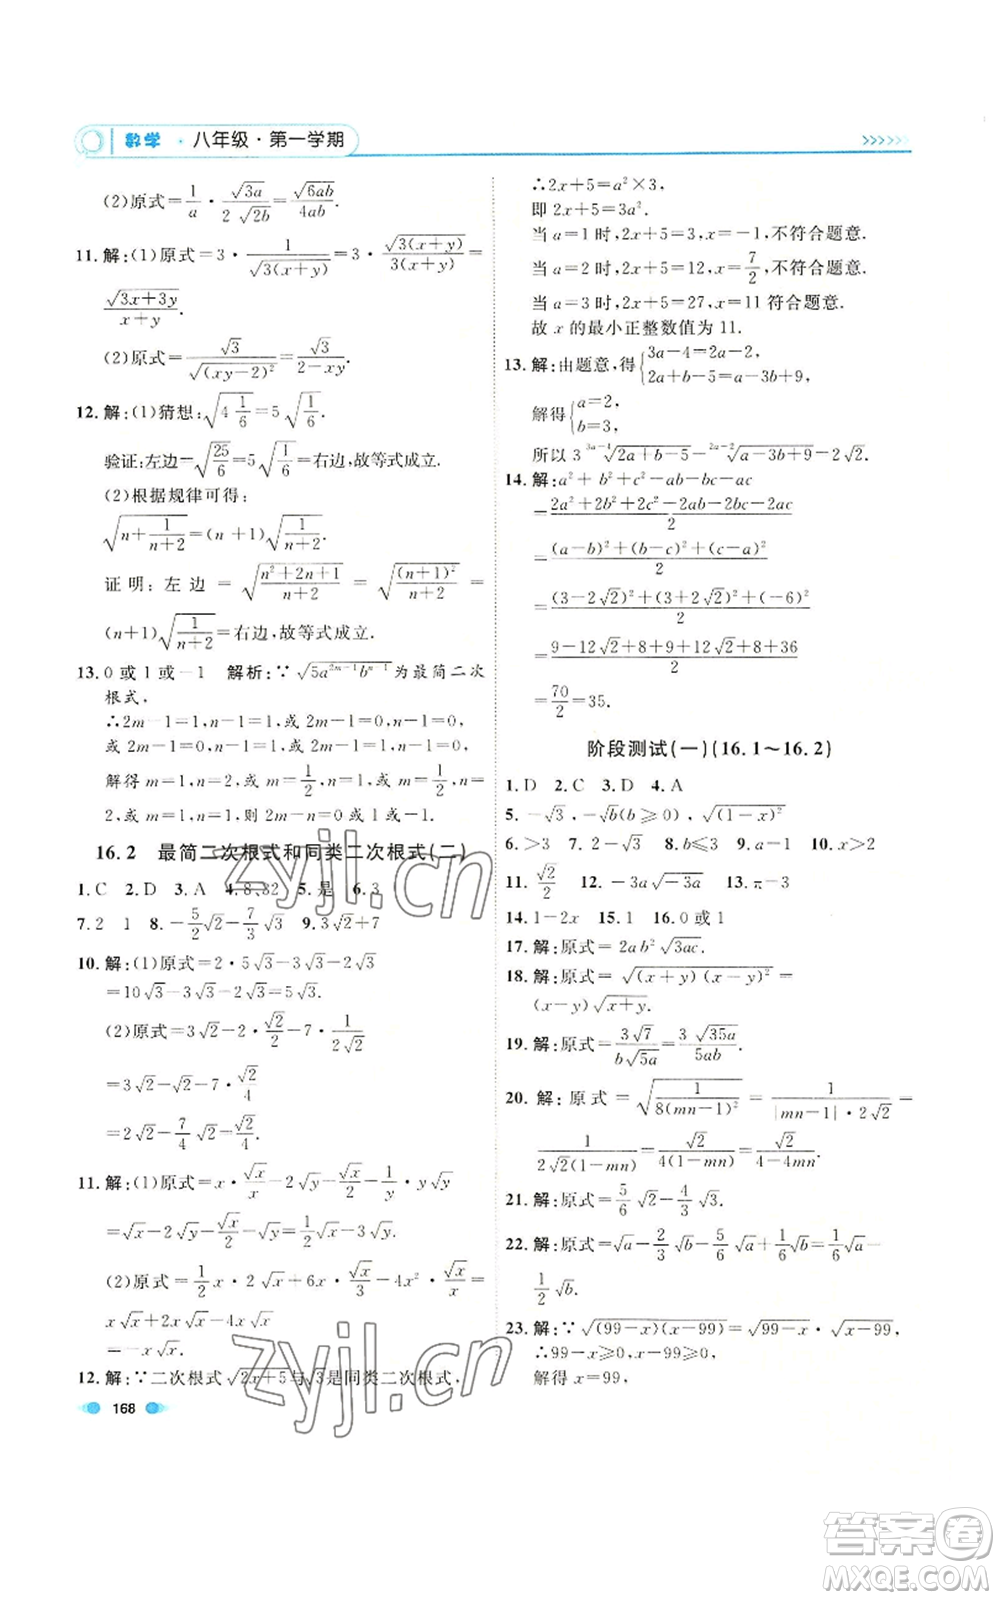 数学 · 八年级 · 第一学期
(2)原式=1/a · √(3a)/(2√(2b))=√(6ab)/(4ab).
11. 解:(1)原式=3 · 1/√(3(x+y))=3 · √(3(x+y))/(3(x+y))=
√(3x+3y)/(x+y).
(2)原式=√3/√((xy-2)²)=√3/(2-xy).
12. 解:(1)猜想:√(4 1/6)=5√(1/6)
验证:左边=√(25/6)=5√(1/6)=右边,故等式成立.
(2)根据规律可得:
√(n+1/(n+2))=(n+1)√(1/(n+2))
证明:左边=√((n²+2n+1)/(n+2))=√((n+1)²/(n+2))=
(n+1)√(1/(n+2))=右边,故等式成立.
13. 0或1或-1 解析:∵√(5a^(2m-1)b^(n-1))为最简二次
根式,
∴2m-1=1,n-1=1,或2m-1=0,n-1=
0,或2m-1=1,n-1=0,或2m-1=0,n-1=1,
解得m=1,n=2,或m=1/2,n=1,或m=1,n=1,或m=1/2,n=
2,故m=1,n=2,或m=1,n=1,则2m-n=0或1或-1.
16.2 最简二次根式和同类二次根式(二)
1. C 2. D 3. A 4. 8,32 5. 是 6. 3
7. 2 1 8. -5/2√2-7/3√3 9. 3√2+7
10. 解:(1)原式=2 · 5√3-3√3-2√3
=10√3-3√3-2√3=5√3.
(2)原式=3√2-2 · √2/2-7 · 1/√8
=3√2-√2-7 · √2/4
=2√2-7/4√2=√2/4.
11. 解:(1)原式=x · √x/x-2√y-√x/2-1/y · y√y
=√x-2√y-√x/2-√y=1/2√x-3√y.
(2)原式=1/2x · 2√x+6x · √x/3-4x² · √x/x=
x√x+2x√x-4x√x
=-x√x.
12. 解:∵二次根式√(2x+5)与√3是同类二次根式,
168
∴2x+5=a²×3,
即2x+5=3a².
当a=1时,2x+5=3,x=-1,不符合题意.
当a=2时,2x+5=12,x=7/2,不符合题意.
当a=3时,2x+5=27,x=11符合题意.
故x的最小正整数值为11.
13. 解:由题意,得{3a-4=2a-2,
2a+b-5=a-3b+9,
解得{a=2,
b=3,
所以3 ^(3a-4)√(2a+b-5)-^(2a-2)√(a-3b+9)=2√2.
14. 解:a²+b²+c²-ab-bc-ac
=(2a²+2b²+2c²-2ab-2bc-2ac)/2
=((a-b)²+(b-c)²+(a-c)²)/2
=((3-2√2)²+(3+2√2)²+(-6)²)/2
=(9-12√2+8+9+12√2+8+36)/2
=70/2=35.
阶段测试(一)(16.1~16.2)
1. D 2. C 3. D 4. A
5. -√3, -√b(b≥0), √((1-x)²)
6. >3 7. 2 8. b≤3 9. a=1 10. x>2
11. √2/2 12. -3a√(-3a) 13. π-3
14. 1-2x 15. 1 16. 0或1
17. 解:原式=2ab²√(3ac).
18. 解:原式=√((x+y)(x-y)²)=
(x-y)√(x+y).
19. 解:原式=3√7/(b√(5a))=3√(35a)/(5ab).
20. 解:原式=√(1/(8(mn-1)²))=1/(|mn-1| · 2√2)=
1/(2√2(1-mn))=√2/(4(1-mn))=√2/(4-4mn).
21. 解:原式=5/6√2-4/3√3.
22. 解:原式=√a-2/3√b-5/6√a+1/6√b=1/6√a-
1/2√b.
23. 解:∵√((99-x)(x-99))=√(99-x) · √(x-99),
∴99-x≥0,x-99≥0.
解得x=99,
zyjl.cn
zyjl.cn
答案圈
MXQE.COM